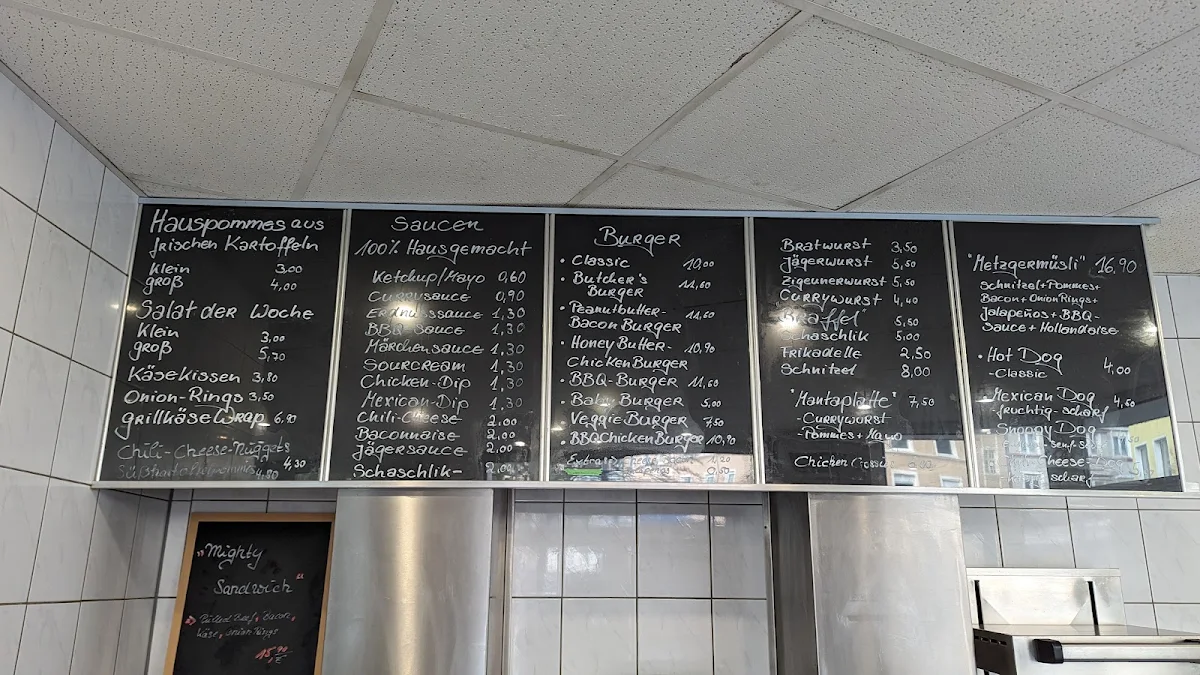 Hauspommes aus
frischen Kartoffeln
klein 3,00
groß 4,00
Salat der Woche
klein 3,00
groß 5,70
Käsekissen 3,80
Onion-Rings 3,50
grillkäse Wrap 6,90
Chili-Cheese-Nuggets
4,30
4,80
Saucen
100% Hausgemacht
Ketchup/Mayo 0,60
Currysauce 0,90
Erdnusssauce 1,30
BBQ-Sauce 1,30
Märchensauce 1,30
Sourcream 1,30
Chicken-Dip 1,30
Mexican-Dip 1,30
Chili-Cheese 2,00
Baconnaise 2,00
Jägersauce 2,00
Schaschlik- 2,00
Burger
• Classic 10,00
• Butcher's
Burger 11,60
• Peanutbutter-
Bacon Burger 11,60
• Honey Butter-
Chicken Burger 10,90
• BBQ-Burger 11,60
• Baby Burger 5,00
Veggie Burger 7,50
BBQ Chicken Burger 10,90
Extra 1,20
0,50
Bratwurst 3,50
Jägerwurst 5,50
Zigeunerwurst 5,50
Currywurst 4,40
"Kraffel" 5,50
Schaschlik 5,00
Frikadelle 2,50
Schnitzel 8,00
"Mantaplatte" 7,50
-Currywurst
-Pommes + Mayo
Chicken
"Metzgermüsli" 16,90
Schnitzel + Pommes +
Bacon + Onion Rings +
Jalapeños + BBQ-
Sauce + Hollandaise
• Hot Dog
-Classic 4,00
Mexican Dog 4,50
-fruchtig-scharf
Snoopy Dog
Cheese-
scharf
"Mighty
Sandwich"
Pulled Beef, Bacon,
Käse, onion Rings
15,90